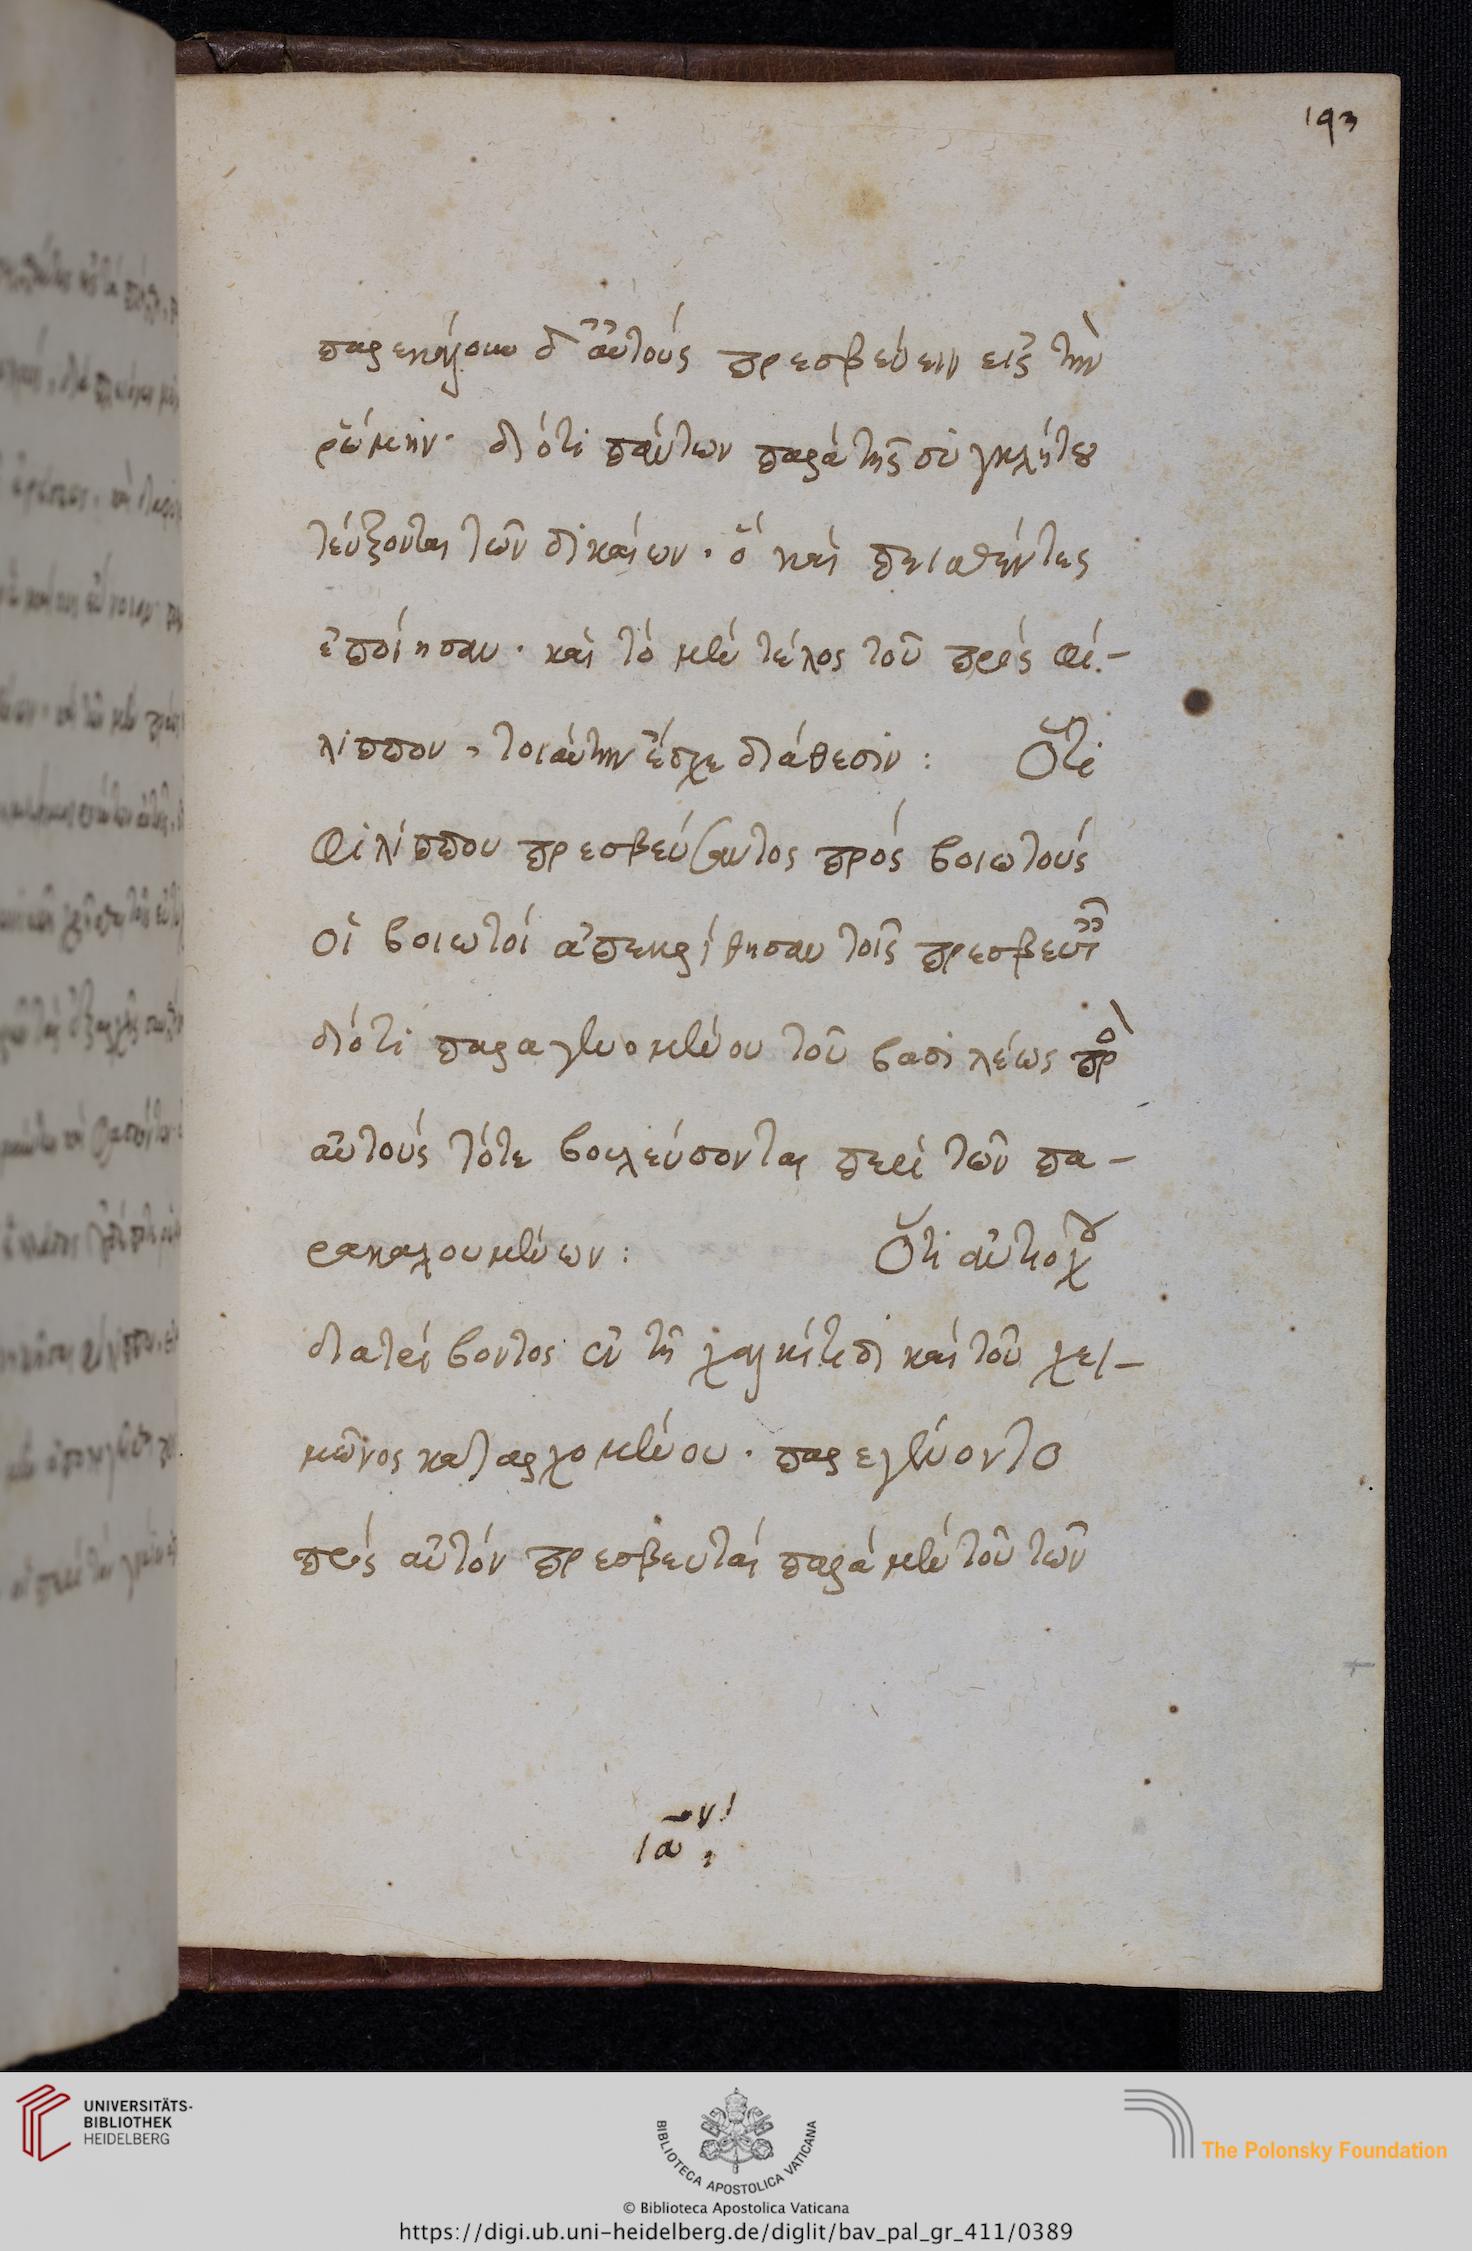 193
παρεκάλουν δ' αὐτοὺς πρεσβεύειν εἰς τὴν
ῥώμην· διότι πάντων παρὰ τῆς συγκλήτου
τεύξονται τῶν δικαίων· ὃ καὶ πεισθέντες
ἐποίησαν· καὶ τὸ μὲν τέλος τοῦ πρὸς Φί-
λιππον, τοιαύτην ἔσχε διάθεσιν: Ὅτι
Φιλίππου πρεσβεύσαντος πρὸς βοιωτοὺς
οἱ βοιωτοὶ ἀπεκρίθησαν τοῖς πρεσβευταῖς
διότι παραγενομένου τοῦ βασιλέως πρὸς
αὐτοὺς τότε βουλεύσονται περὶ τῶν πα-
ρακαλουμένων: Ὅτι ἀντιόχου
διατρίβοντος ἐν τῇ χαλκίδι καὶ τοῦ χει-
μῶνος καταρχομένου· παρεγένοντο
πρὸς αὐτὸν πρεσβευταὶ παρὰ μὲν τοῦ τῶν
UNIVERSITÄTS-
BIBLIOTHEK
HEIDELBERG
BIBLIOTECA APOSTOLICA VATICANA
The Polonsky Foundation
© Biblioteca Apostolica Vaticana
https://digi.ub.uni-heidelberg.de/diglit/bav_pal_gr_411/0389